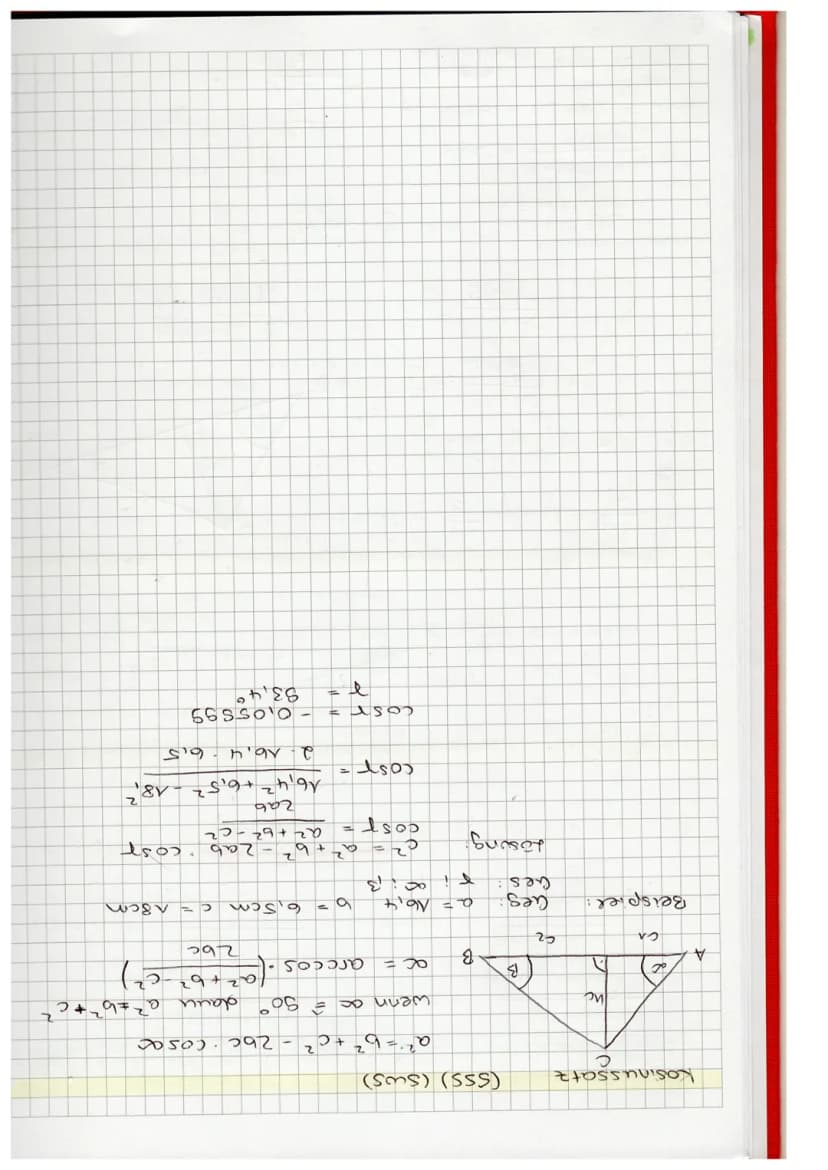 Kosinussatz (SSS) (SWS)
a² = b² + c² - 2bc · cosα
wenn α ≙ 90° dann a² = b² + c²
α = arccos · (a² + b² - c² / 2bc)
C
hc
α
β
A
B
c1
c2
Beispiel: Geg: a = 16,4 b = 6,5cm c = 18cm
Ges: γ; α; β
Lösung: c² = a² + b² - 2ab · cosγ
cosγ = a² + b² - c² / 2ab
cosγ = 16,4² + 6,5² - 18,² / 2 · 16,4 · 6,5
cosγ = - 0,05899
γ = 93,4°